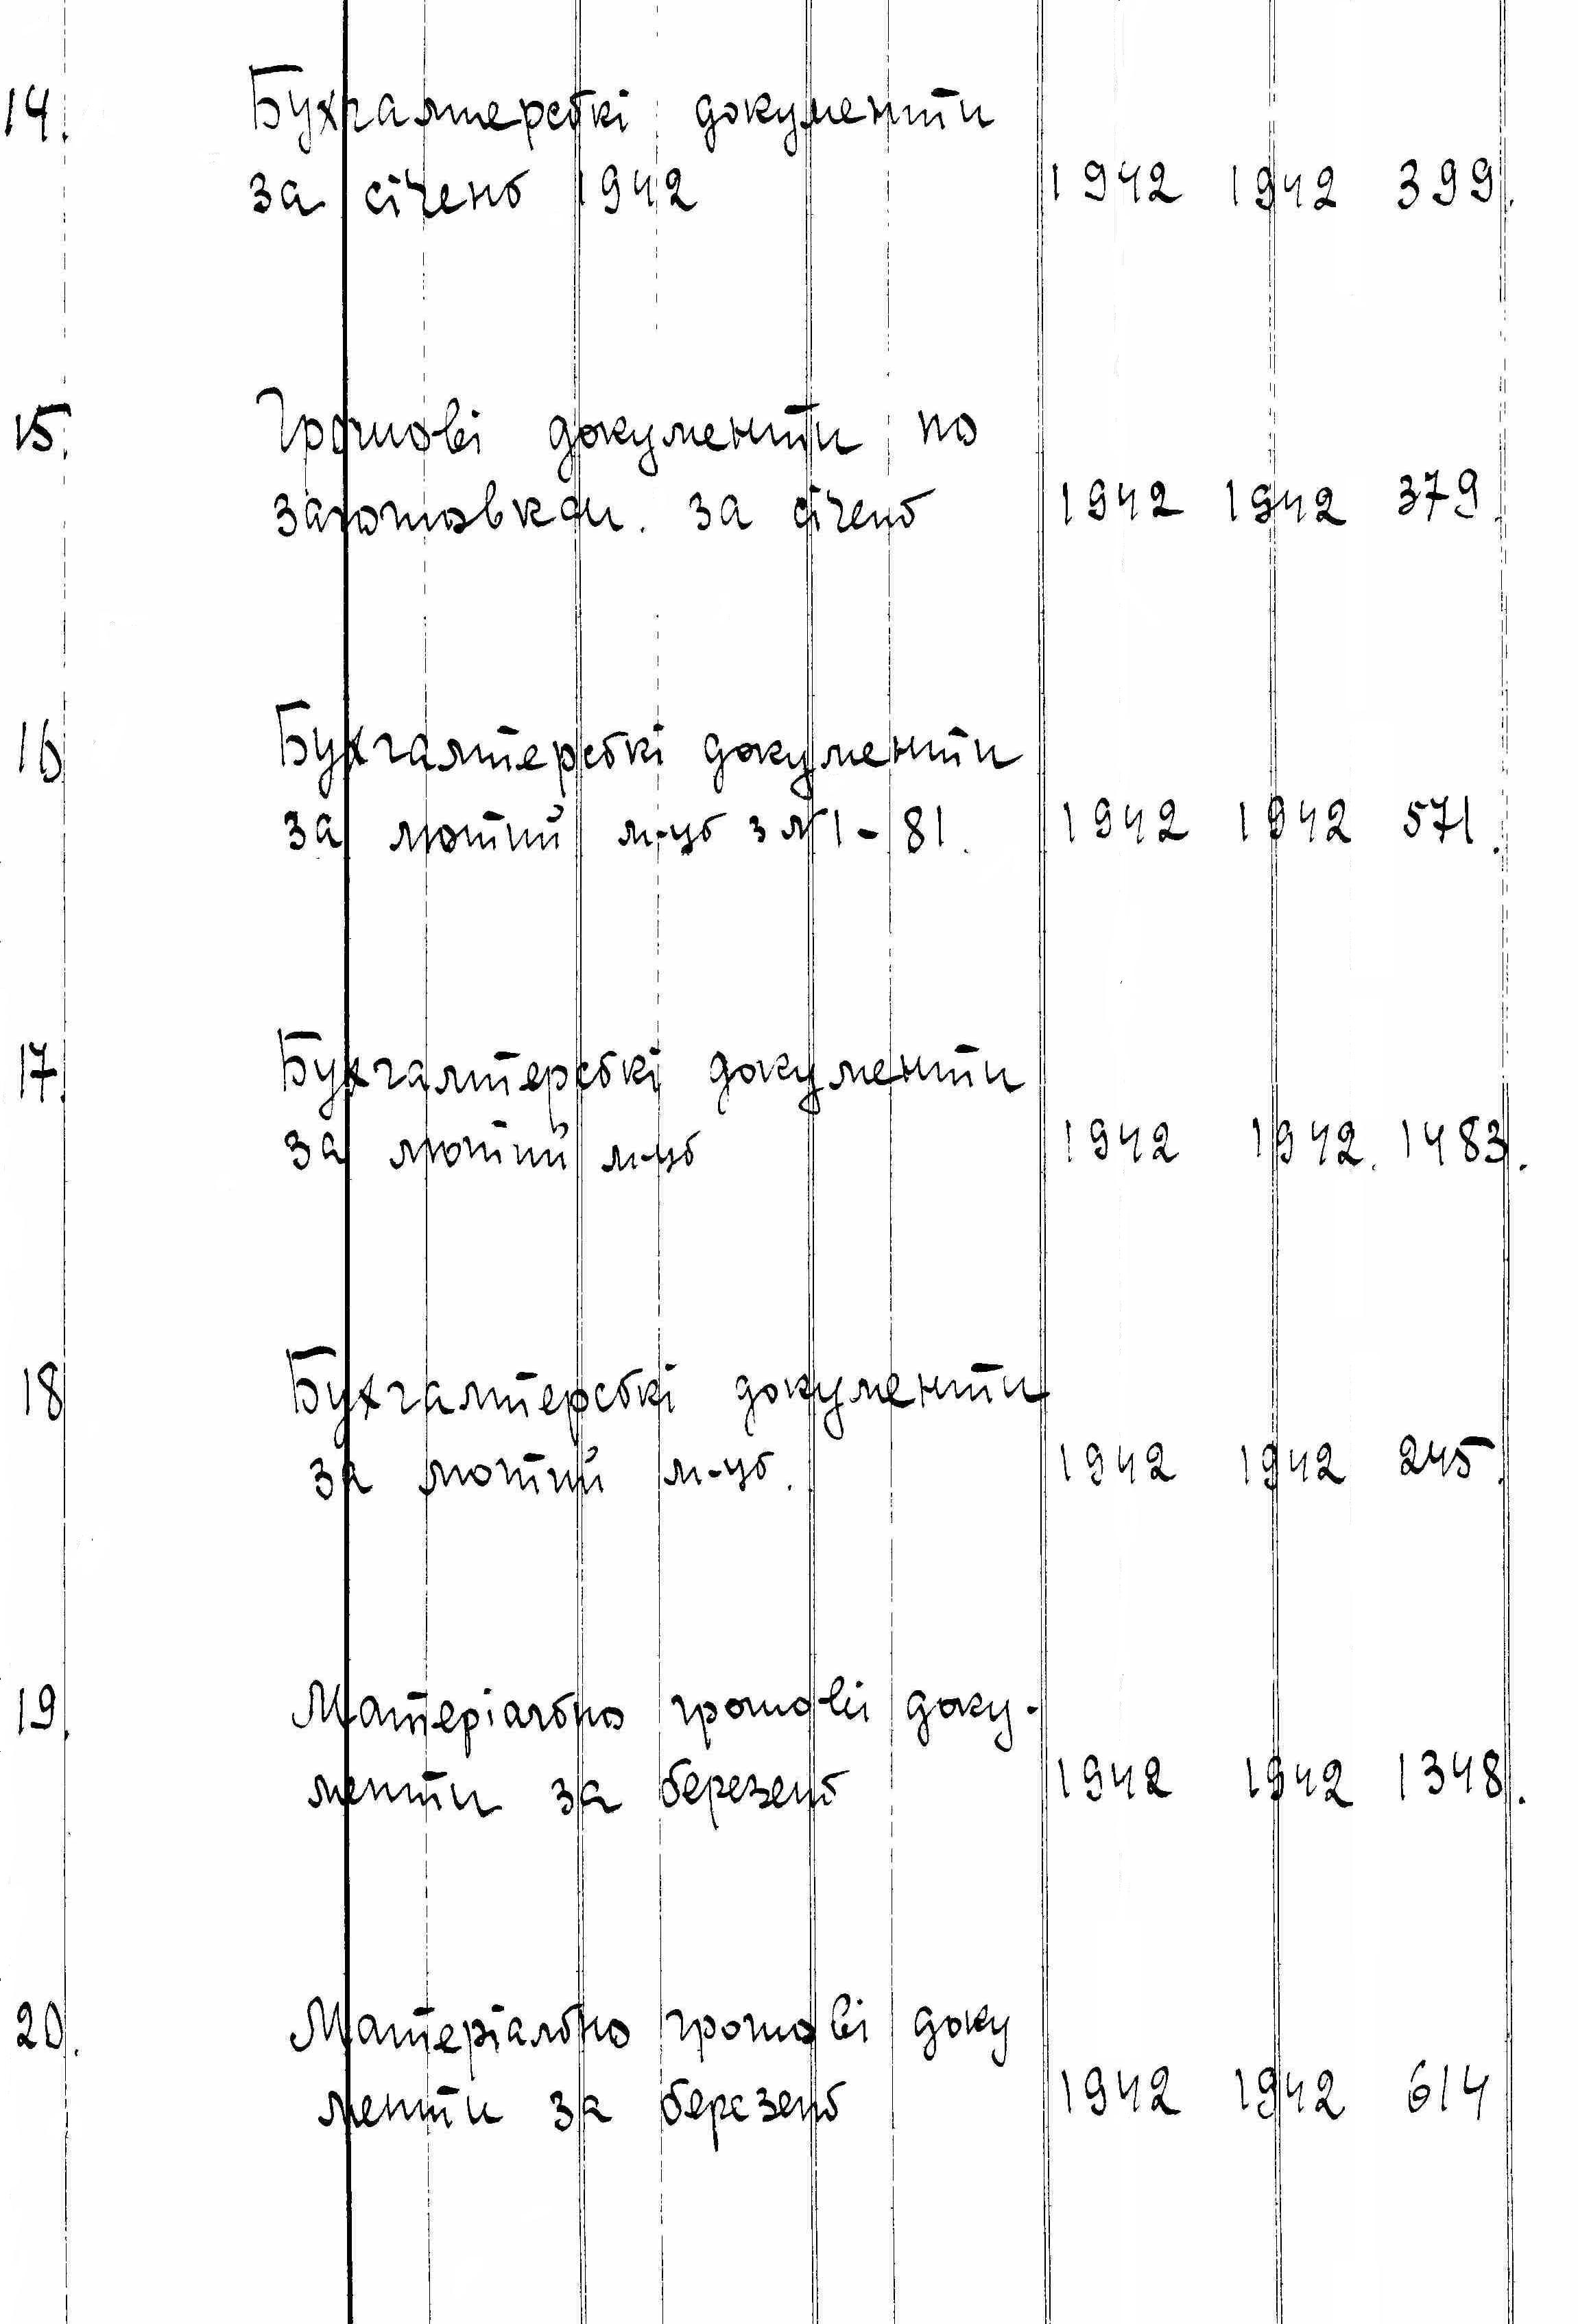 14. Бухгалтерські документи
за січень 1942 1942 1942 399.
15. Грошові документи по
заготовкам. за січень 1942 1942 379.
16 Бухгалтерські документи
за лютий м-ць з №1-81. 1942 1942 571.
17. Бухгалтерські документи
за лютий м-ць 1942 1942. 1483.
18 Бухгалтерські документи
за лютий м-ць. 1942 1942 245.
19. Матеріально грошові доку-
менти за березень 1942 1942 1348.
20. Матеріально грошові доку
менти за березень 1942 1942 614